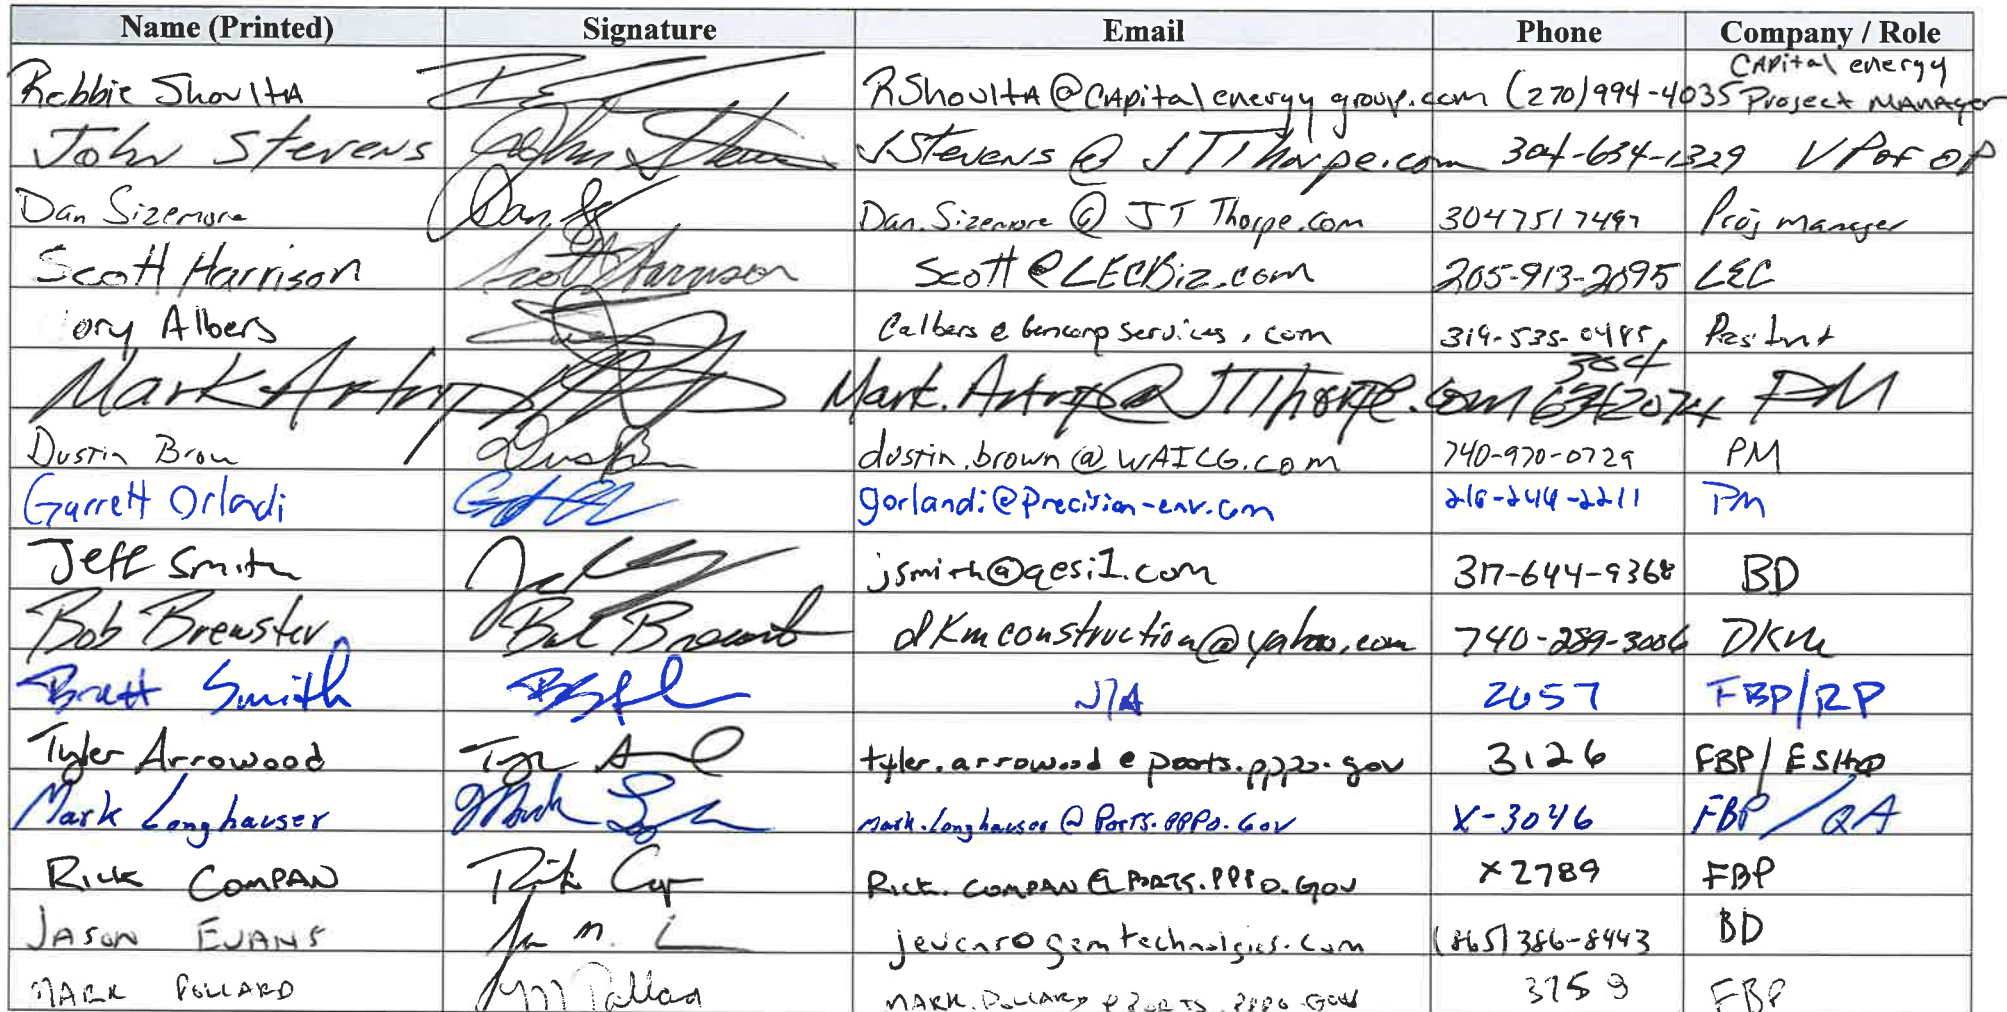 Name (Printed) Signature Email Phone Company / Role
Robbie ShoultA RShoultA@CApital energy group.com (270)994-4035 CApital energy Project MANAger
John Stevens John Steve JStevens @ JTThorpe.com 304-634-1329 VP of OP
Dan Sizemore Dan Dan.Sizemore @ JT Thorpe.com 3047517497 Proj manager
Scott Harrison Scott Harrison Scott@LECBiz.com 205-913-2095 LEC
ory Albers Calbers@bencorpservices.com 319-535-0485
Mark Artrip Mark.Artrip@JTThorpe.com 304 6342074 PM
Dustin Brow Dustin B dustin.brown@WAICG.com 740-970-0729 PM
Garrett Orlandi gorlandi@Precision-env.com 216-244-2211 PM
Jeff Smith jsmith@qesi1.com 317-644-9368 BD
Bob Brewster Bob Brewster dkmconstruction@yahoo.com 740-289-3006 DKM
Brett Smith N/A 2657 FBP/RP
Tyler Arrowood Tyler A tyler.arrowood@ports.pppo.gov 3126 FBP/ESH&Q
Mark Longhauser Mark L Mark.Longhauser@Ports.PPPO.Gov X-3046 FBP/QA
Rick COMPAN Rick C Rick.COMPAN@PORTS.PPPO.Gov x2789 FBP
JASON EVANS jevans@gemtechnolgies.com (865)386-8443 BD
MARK POLLARD M Pollard MARK.POLLARD@PORTS.PPPO.GOV 3759 FBP